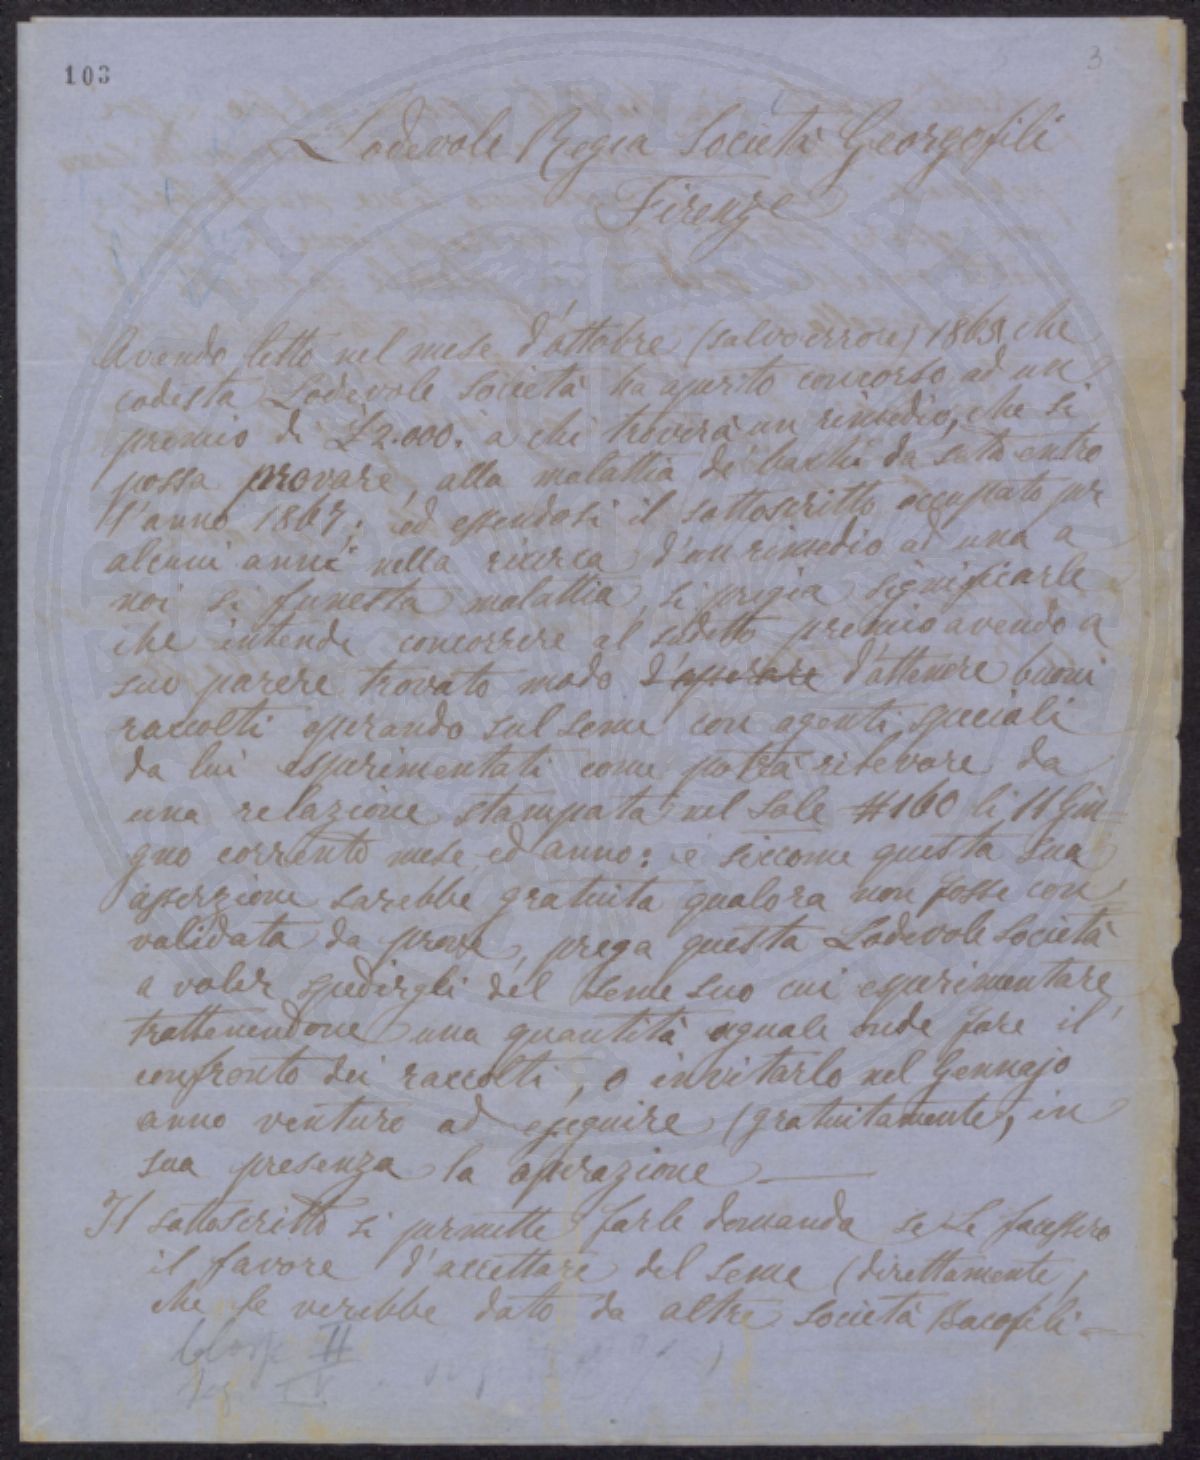 103
3
Lodevole Regia Società Georgofili
Firenze
Avendo letto nel mese d'ottobre (salvo errore) 1865 che
codesta Lodevole Società ha aperto concorso ad un
premio di £2.000. a chi troverà un rimedio, che si
possa provare, alla malattia de' bachi da seta entro
l'anno 1867; ed essendosi il sottoscritto occupato per
alcuni anni nella ricerca d'un rimedio ad una a
noi si funesta malattia, si pregia significarle
che intende concorrere al sudetto premio avendo a
suo parere trovato modo d'operare d'ottenere buoni
raccolti operando sul seme con agenti speciali
da lui esperimentati come potrà rilevare da
una relazione stampata nel Sole #160 li 11 Giu-
gno corrente mese ed anno: e siccome questa sua
asserzione sarebbe gratuita qualora non fosse con
validata da prove, prega questa Lodevole Società
a voler spedirgli del seme suo cui esperimentare
trattenendone una quantità uguale onde fare il
confronto dei raccolti, o invitarlo nel Gennajo
anno venturo ad eseguire (gratuitamente, in
sua presenza la operazione —
Il sottoscritto si permette farle domanda se Le facessero
il favore d'accettare del seme (direttamente,
che le verebbe dato da altre Società Bacofili —
Class II